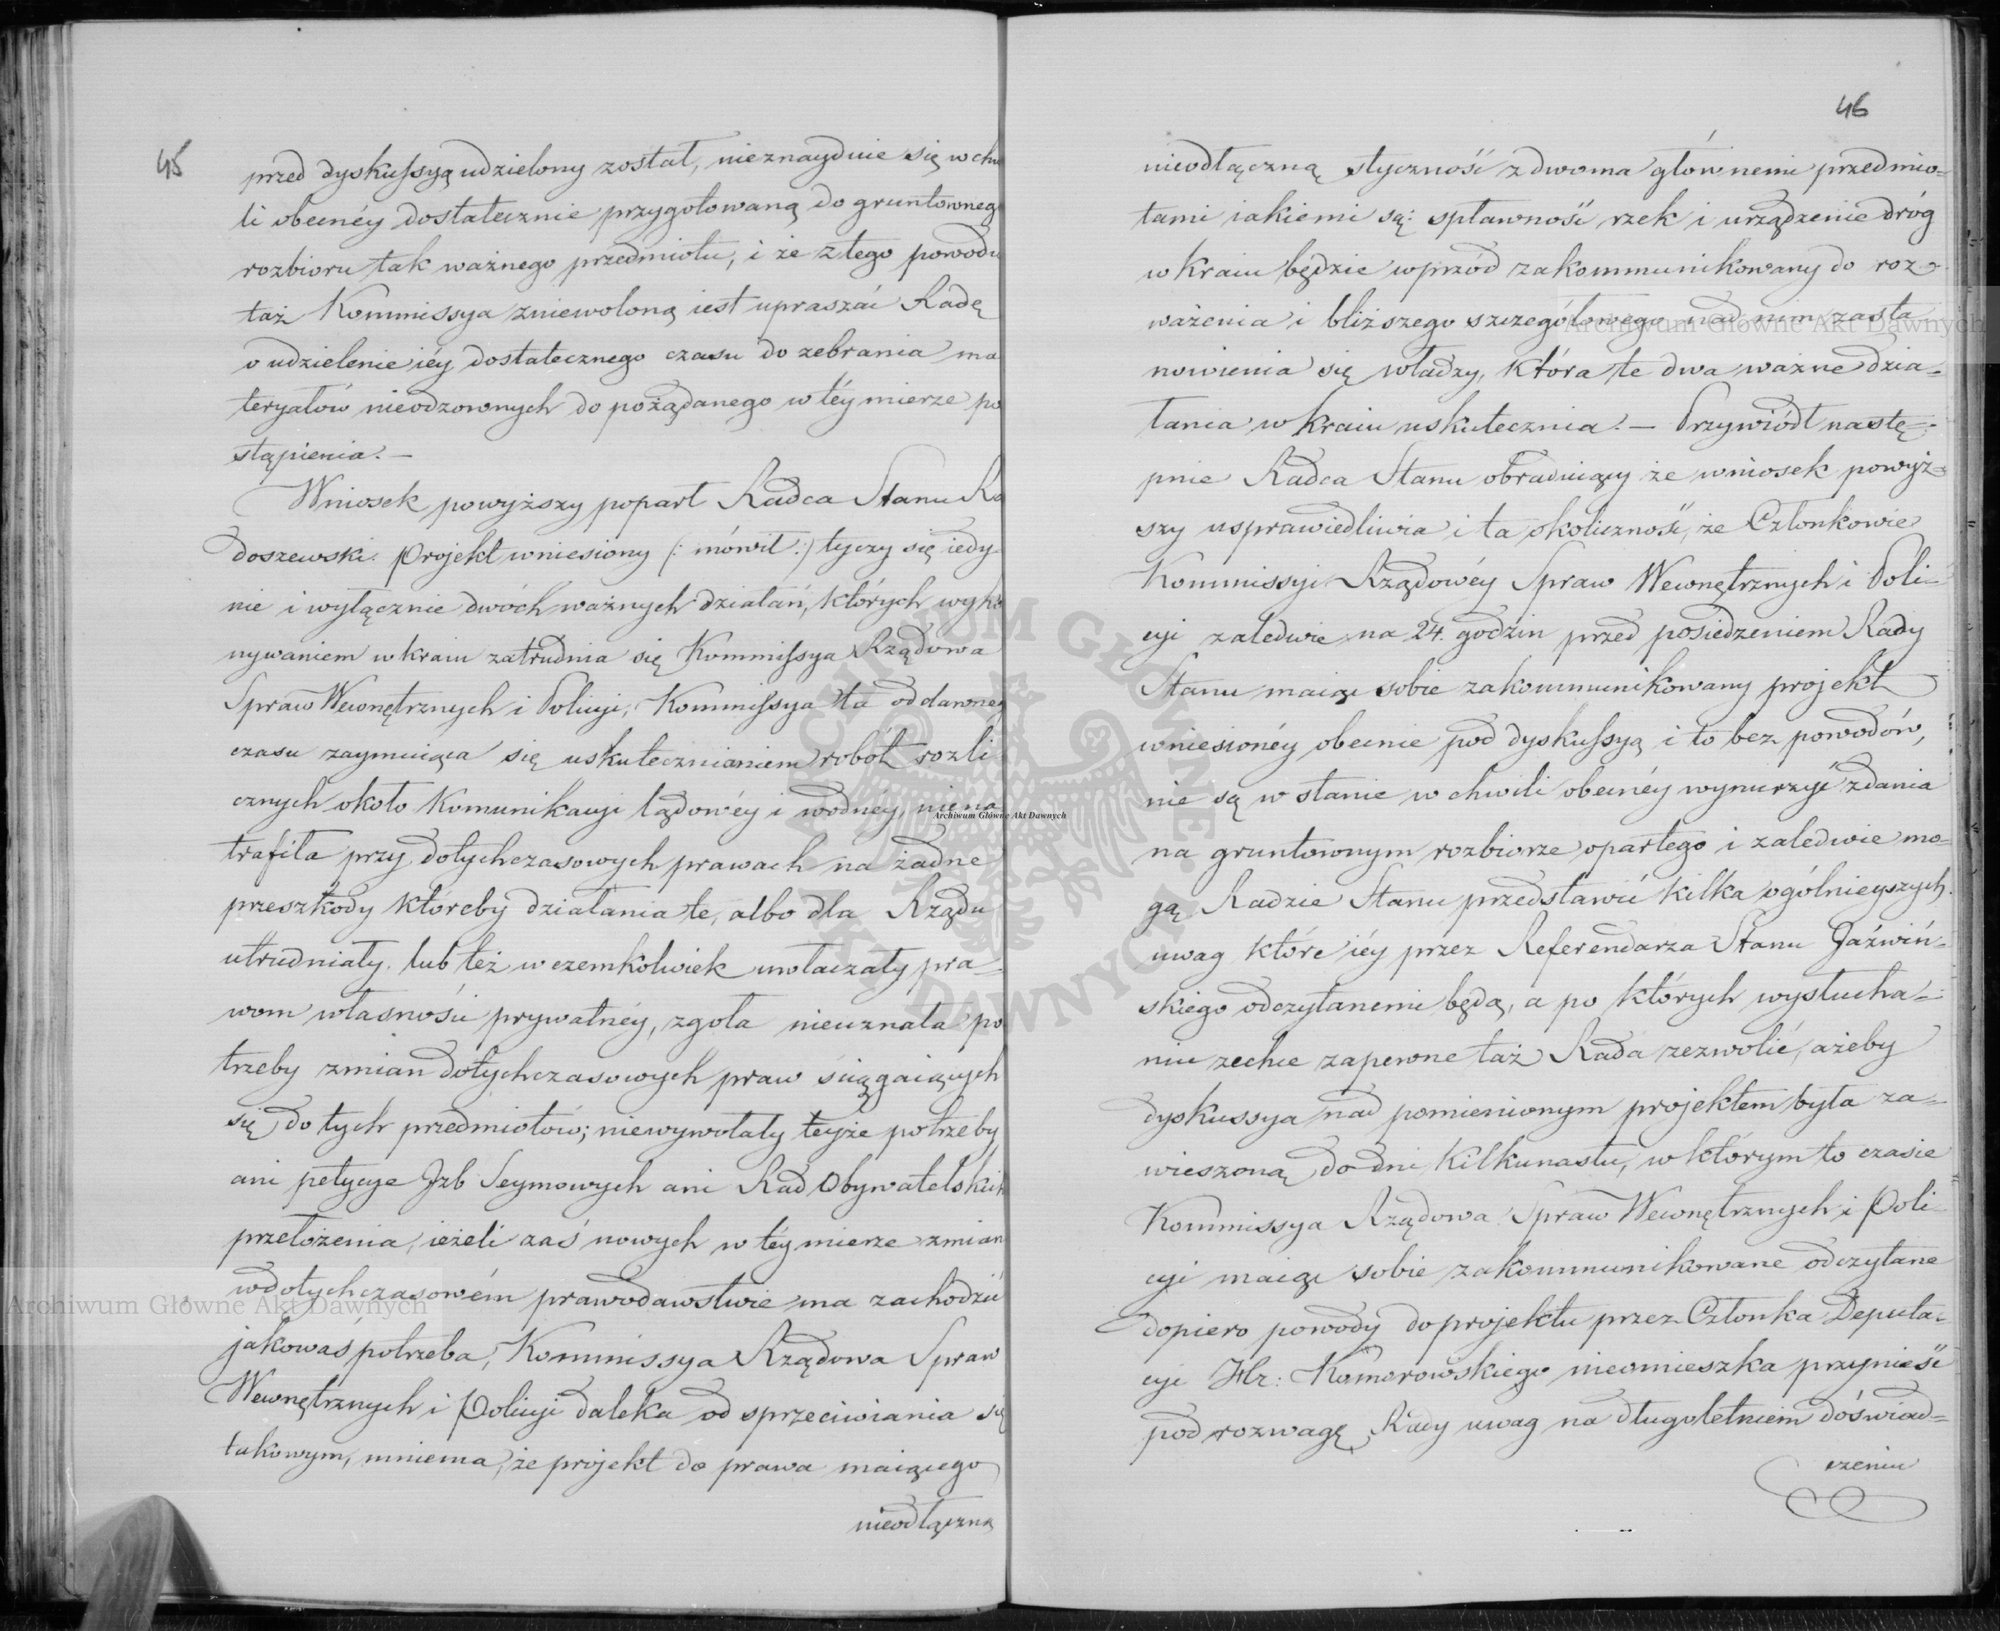 45
przed dyskussyą udzielony został, nieznayduie się w chwi
li obecnéy dostatecznie przygotowaną do gruntownego
rozbioru tak ważnego przedmiotu, i że z tego powodu
taż Kommissya zniewoloną iest upraszać Radę
o udzielenie iéy dostatecznego czasu do zebrania ma
teryałów nieodzownych do pożądanego w téy mierze po
stąpienia. —
Wniosek powyższy poparł Radca Stanu Ra
doszewski. Projekt wniesiony (: mówił :) tyczy się iedy
nie i wyłącznie dwóch ważnych działań, których wyko
nywaniem w kraiu zatrudnia się Kommissya Rządowa
Spraw Wewnętrznych i Policyi; Kommissya ta od dawnego
czasu zaymuiąca się uskutecznianiem robót rozli
cznych około Komunikacyi lądowéy i wodnéy, nie na
trafiła przy dotychczasowych prawach na żadne
przeszkody któreby działania te, albo dla Rządu
utrudniały, lub też w czemkolwiek uwłaczały pra-
wom własności prywatnéy, zgoła nieuznała po
trzeby zmian dotychczasowych praw ściągaiących
się do tych przedmiotów; niewywołały teyże potrzeby
ani petycye Izb Seymowych ani Rad Obywatelskich
przełożenia, ieżeli zaś nowych w téy mierze zmian
w dotychczasowém prawodawstwie ma zachodzić
jakowaś potrzeba, Kommissya Rządowa Spraw
Wewnętrznych i Policyi daleka od sprzeciwiania się
takowym, mniema, że projekt do prawa maiącego
nieodłączną
46
nieodłączną styczność z dwoma głównemi przedmio-
tami iakiemi są: spławność rzek i urządzenie dróg
w kraiu będzie wprzód zakommunikowany do roz-
ważenia i bliższego szczegółowego nad nim zasta
nowienia się władzy, która te dwa ważne dzia-
łania w kraiu uskutecznia. — Przywiódł nastę-
pnie Radca Stanu obraduiący że wniosek powyż-
szy usprawiedliwia i ta okoliczność, że Członkowie
Kommissyi Rządowéy Spraw Wewnętrznych i Poli-
cyi zaledwie na 24. godzin przed posiedzeniem Rady
Stanu maiąc sobie zakommunikowany projekt
wniesionéy obecnie pod dyskussyą i to bez powodów,
nie są w stanie w chwili obecnéy wynurzyć zdania
na gruntownym rozbiorze opartego i zaledwie mo-
gą Radzie Stanu przedstawić kilka ogólnieyszych
uwag które iéy przez Referendarza Stanu Jaźwiń-
skiego odczytanemi będą, a po których wysłucha-
niu zechce zapewne taż Rada zezwolić, ażeby
dyskussya nad pomienionym projektem była za-
wieszoną do dni kilkunastu, w którym to czasie
Kommissya Rządowa Spraw Wewnętrznych i Poli-
cyi maiąc sobie zakommunikowane odczytane
dopiero powody do projektu przez Członka Deputa-
cyi Hr: Komorowskiego nieomieszka przynieść
pod rozwagę Rady uwag na długoletniem doświad-
czeniu
Archiwum Główne Akt Dawnych
Archiwum Główne Akt Dawnych
Archiwum Główne Akt Dawnych
ARCHIWUM GŁÓWNE AKT DAWNYCH